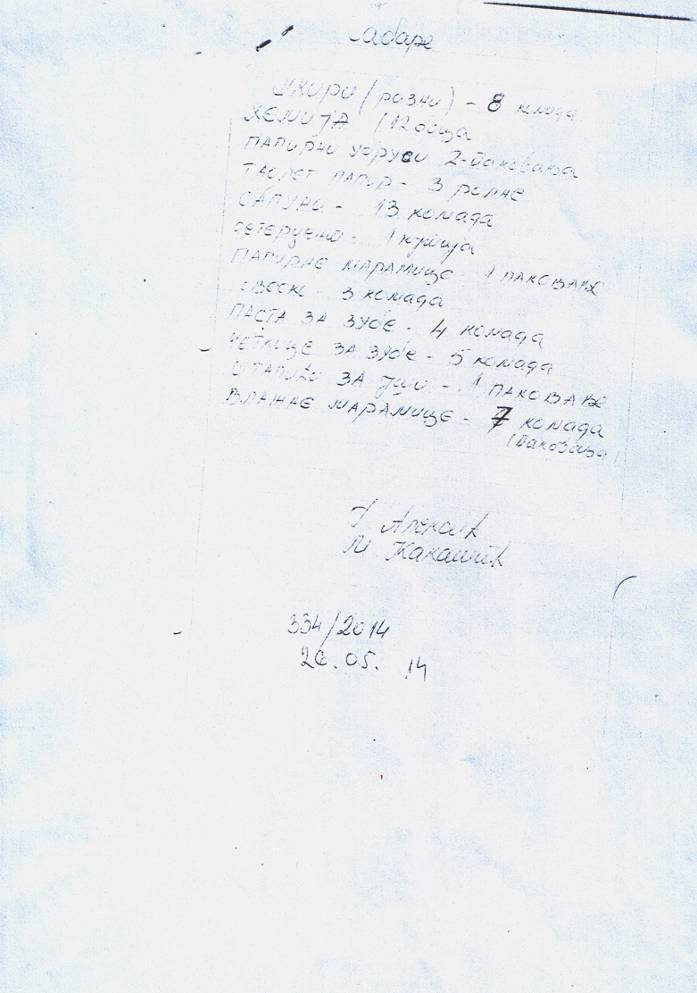 Сабаре
(разни) - 8 комада
ХЕМИЈА (12 ооица
ПАПИРНИ УБРУСИ 2 паковања
ТАОЛЕТ ПАПИР - 3 ролне
САПУНИ - 13 комада
1 кутија
ПАПИРНЕ МАРАМИЦЕ 1 ПАКОВАЊЕ
3 комада
ПАСТА ЗА ЗУБЕ - 4 комада
ЧЕТКИЦЕ ЗА ЗУБЕ - 5 комада
ШТАПИЋИ ЗА УШИ - 1 ПАКОВАЊЕ
ВЛАЖНЕ МАРАМИЦЕ - 7 комада
(паковања)
Алексић
М.
334/2014
26.05. 14